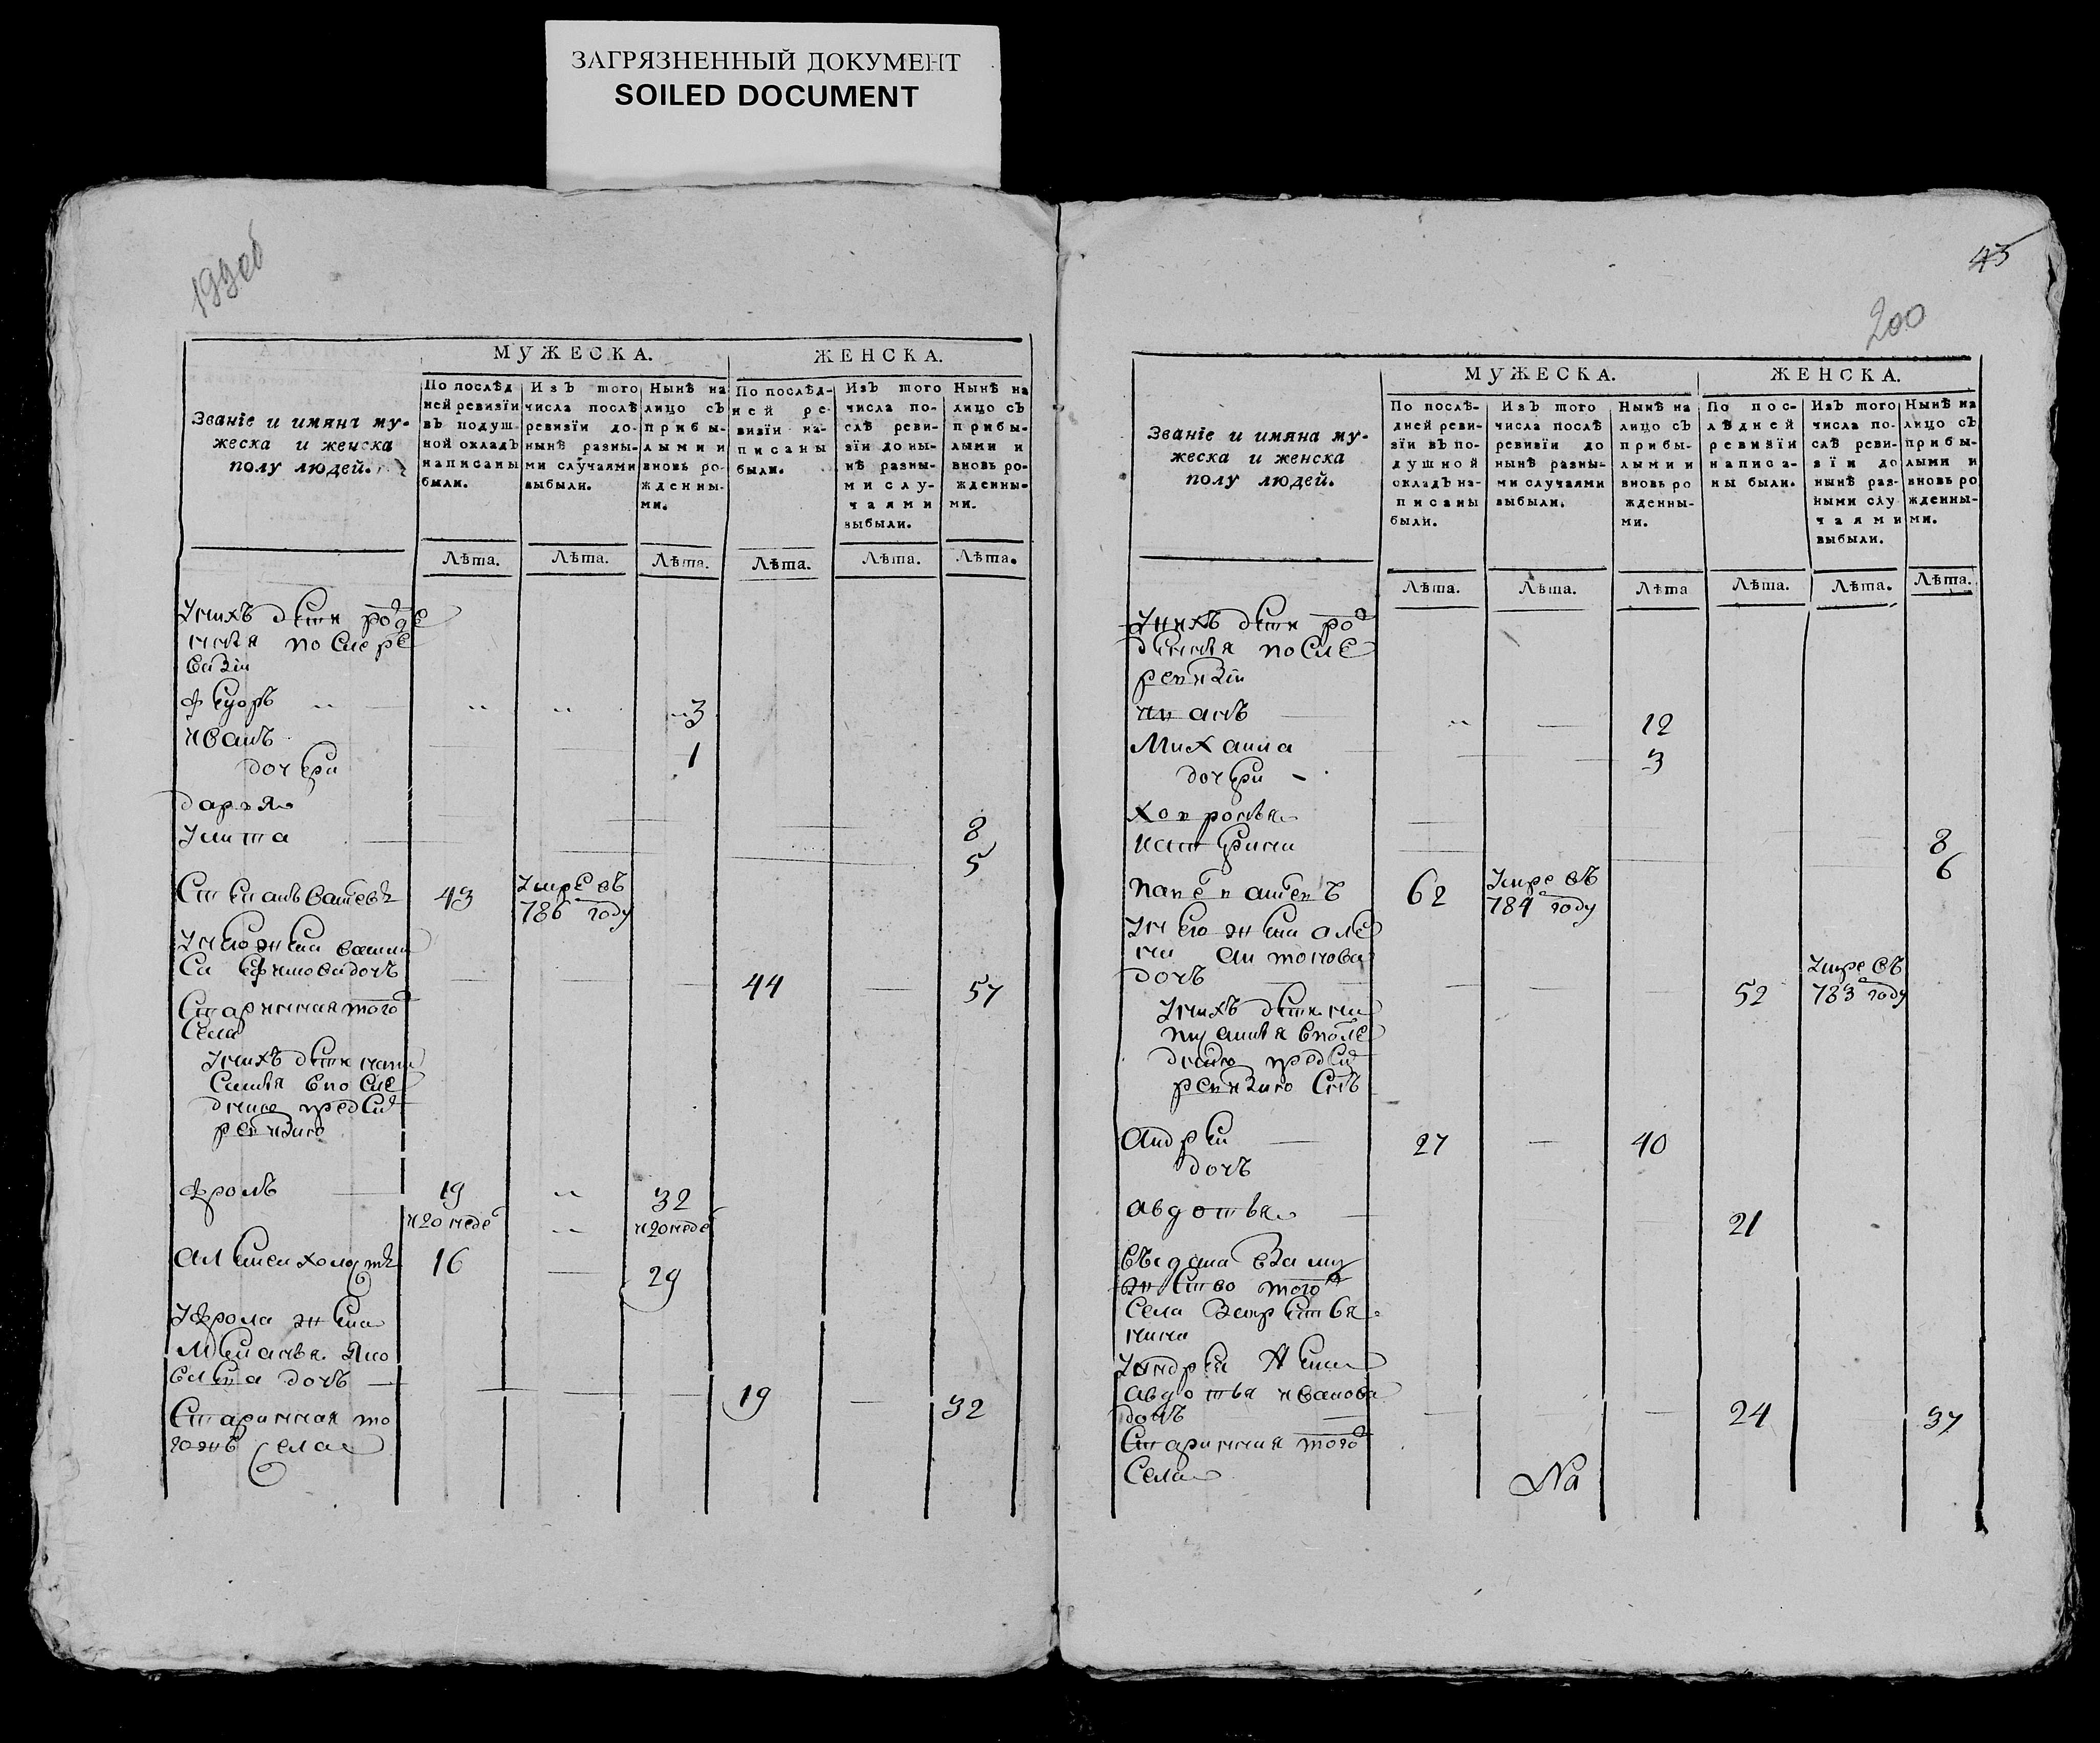 ЗАГРЯЗНЕННЫЙ ДОКУМЕНТ
SOILED DOCUMENT
199об
Званіе и имяна му-
жеска и женска
полу людей.
МУЖЕСКА.
ЖЕНСКА.
По послѣд
ней ревизїи
въ подуш-
ной окладъ
написаны
были.
Изъ того
числа послѣ
ревизїи до-
нынѣ разны-
ми случаями
выбыли.
Нынѣ на
лицо съ
прибы-
лыми и
вновь ро-
жденны-
ми.
По послѣд-
ней ре-
визїи на-
писаны
были.
Изъ того
числа по-
слѣ реви-
зїи до ны-
нѣ разны-
ми слу-
чаями
выбыли.
Нынѣ на
лицо съ
прибы-
лыми и
вновь ро-
жденны-
ми.
Лѣта. Лѣта. Лѣта. Лѣта. Лѣта. Лѣта.
Унихъ дети рожде
нныя после ре
визіи
Федоръ 3
иванъ 1
дочери
дарья 8
Улита 5
Степанъ 43 Умре въ
786 году
Унего жена васили
са Ефимова дочь 44 57
Старинная того
села
Унихъ дети напи
санныя впосле
днию пред сим
ревизию
Фролъ 19 32
инедо инедо
Алексей холостъ 16 29
Уфрола жена
Меланья Яко
влева дочь 19 32
Старинная то
гожъ села
43
200
Званіе и имяна му-
жеска и женска
полу людей.
МУЖЕСКА.
ЖЕНСКА.
По послѣ-
дней реви-
зїи въ по-
душной
окладъ на-
писаны
были.
Изъ того
числа послѣ
ревизїи до
нынѣ разны-
ми случаями
выбыли.
Нынѣ на
лицо съ
прибы-
лыми и
вновь ро
жденны-
ми.
По пос-
лѣдней
ревизїи
написа-
ны были.
Изъ того
числа по-
слѣ реви-
зїи до
нынѣ раз-
ными слу
чаями
выбыли.
Нынѣ на
лицо съ
прибы-
лыми и
вновь ро
жденны-
ми.
Лѣта. Лѣта. Лѣта Лѣта. Лѣта. Лѣта.
Унихъ дети рож
денныя после
ревизіи
иванъ 12
Михаила 3
дочери
Хавронья 8
катерина 6
62 Умре въ
784 году
Унего жена алё
на антонова
дочь 52 Умре въ
783 году
Унихъ дети на
писанныя впосле
днюю пред сим
ревизию сынъ
андрей 27 40
дочь
авдотья 21
въдана Взаму
жство того ж
села Закрестья
нина
Уандрея жена
авдотья иванова
дочь 24 37
Старинная того ж
села
На